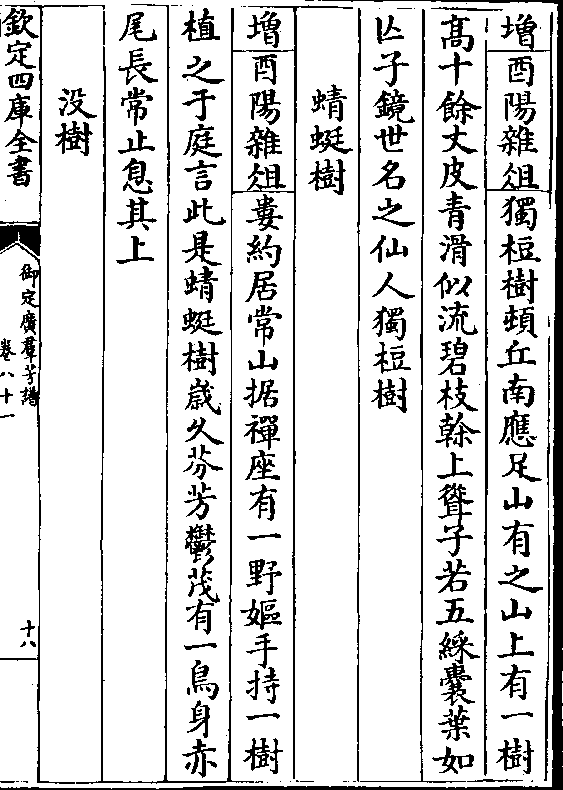 増酉陽雜俎獨梪樹頓丘南應足山有之山上有一樹
髙十餘丈皮青滑似流碧枝幹上聳子若五綵囊葉如
亾子鏡世名之仙人獨梪樹
蜻蜓樹
増酉陽雜俎婁約居常山据禪座有一野嫗手持一樹
植之于庭言此是蜻蜓樹歲久芬芳鬱茂有一鳥身赤
尾長常止息其上
没樹
欽定四庫全書
御定廣羣芳譜
卷八十一
十八